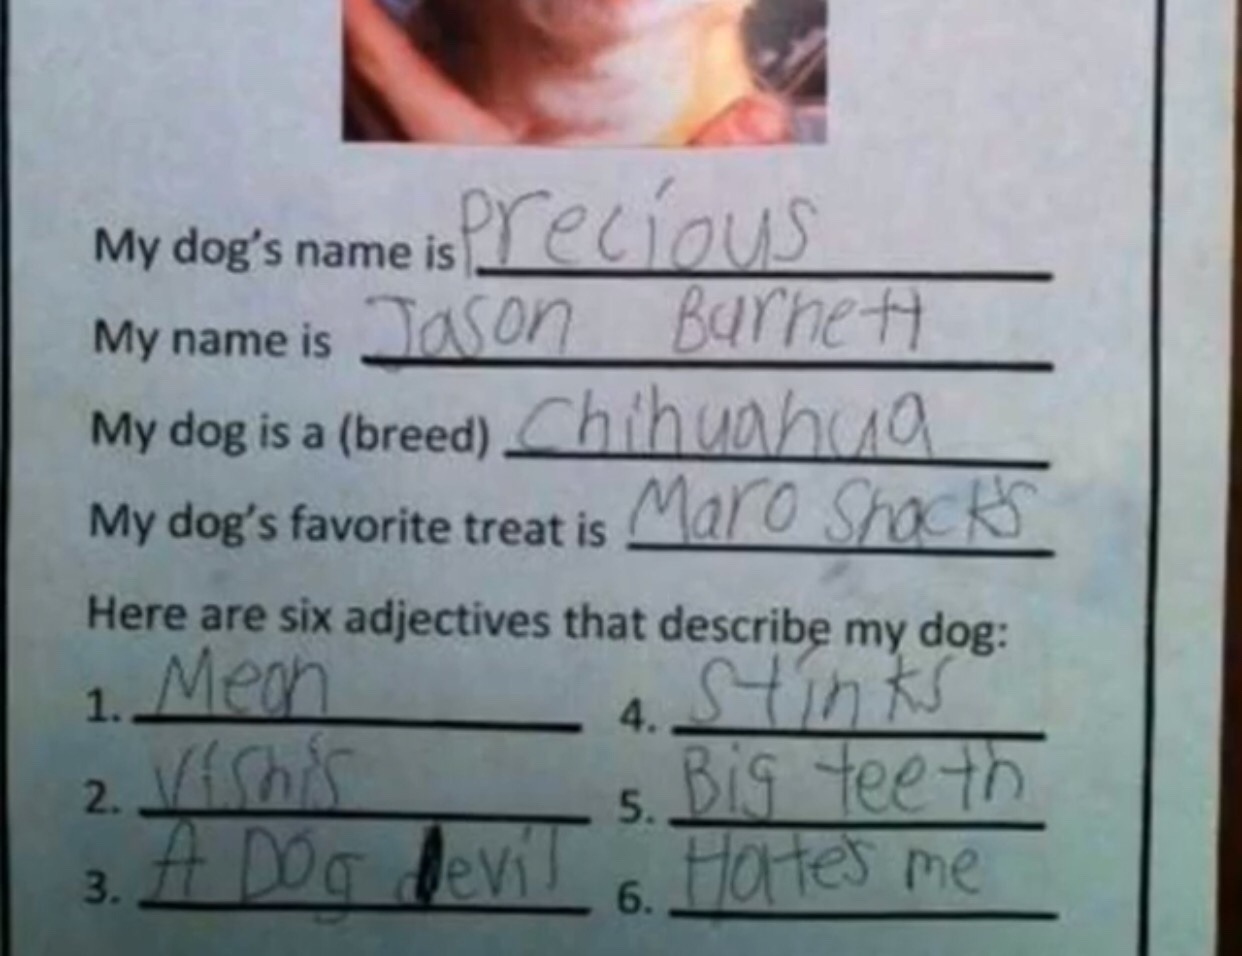 My dog's name is Precious
My name is Jason Barnett
My dog is a (breed) Chihuahua
My dog's favorite treat is Maro Snacks
Here are six adjectives that describe my dog:
1. Mean 4. Stinks
2. Vishis 5. Big teeth
3. A Dog devil 6. Hates me